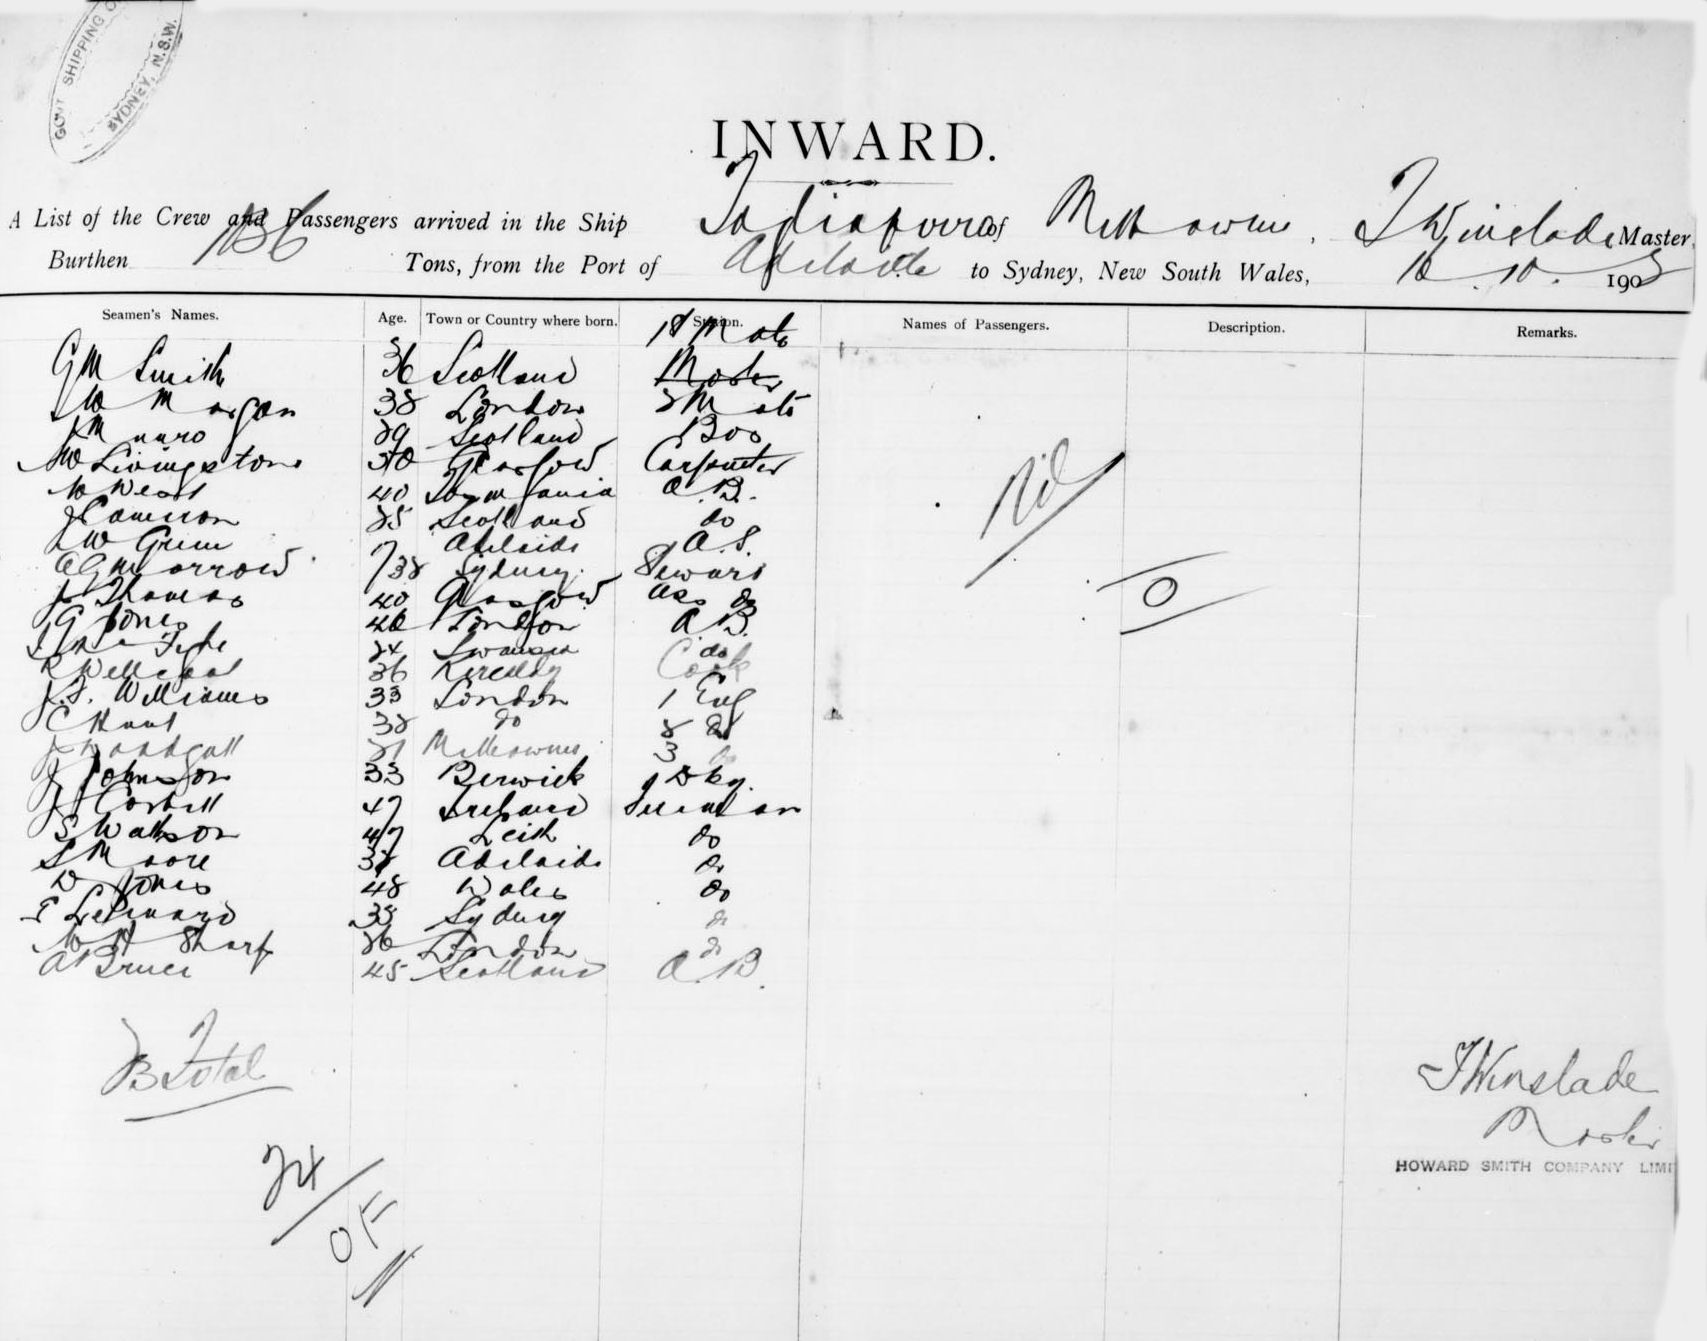 GOVT SHIPPING O
SYDNEY, N.S.W.
INWARD.
A List of the Crew and Passengers arrived in the Ship of Melbourne, T Winslade Master,
Burthen Tons, from the Port of Adelaide to Sydney, New South Wales, 10. 190
Seamen's Names. Age. Town or Country where born. Station. Names of Passengers. Description. Remarks.
1st Mate
G M Smith 36 Scotland Master
W Morgan 38 London 2 Mate
Munro 29 Scotland Bos
W Livingstone 30 Glasgow Carpenter
W West 40 Tasmania A.B.
J Cameron 25 Scotland do
W Green Adelaide O.S.
Morrow 38 Sydney Steward
J Thomas 40 Glasgow Ass do
G Jones 40 London A B.
24 Swansea do
R 36 Cook
J. S. Williams 33 London 1 Eng
C Hunt 38 do 2 do
J Woodgate Melbourne 3 do
J Johnson 33 Berwick Dky.
J Corbett 47 Ireland Fireman
S Watson 47 Leith do
S Moore Adelaide do
D Jones 48 Wales do
38 Sydney do
W H Sharp 26 London do
A Bruce 45 Scotland A B.
Nil
0
23 Total
24
O F
N
T Winslade
Master
HOWARD SMITH COMPANY LIMI